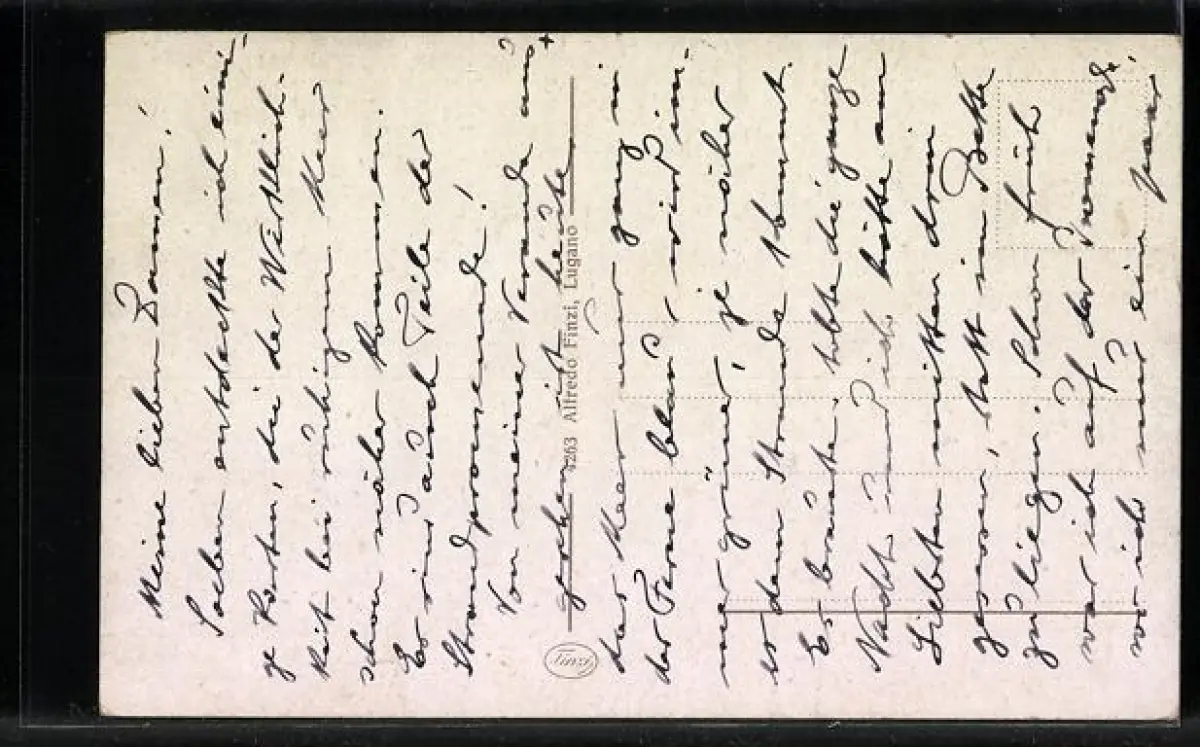 Meine lieben Damen!
Soeben entdeckte ich eini-
ge Karten, die der Wirklich-
keit bei ruhigem Meer
schon näher kommen.
Es sind auch Teile der
Strandpromenade!
Von meiner Veranda aus
gesehen ist heute
das Meer nur ganz in
der Ferne blau, wird im-
mer grüner, je näher
es dem Strande kommt.
Es brauste, tobte die ganze
Nacht und ich hätte am
Liebsten mitten drin
gesessen, statt im Bette
zu liegen. Schon früh
war ich auf der Promenade,
wo ich nur ein paar
4263 Alfredo Finzi, Lugano
Finzi